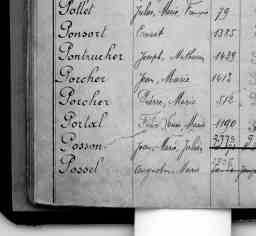 Pollet Jules, Marie, François 79
Ponsort Ernest 1385
Pontrucher Joseph, Mathurin 1439
Porcher Jean, Marie 1412
Porcher Pierre, Marie 512
Portal Marie 1190
Posson Jean, Marie, Julien
Possel Marie